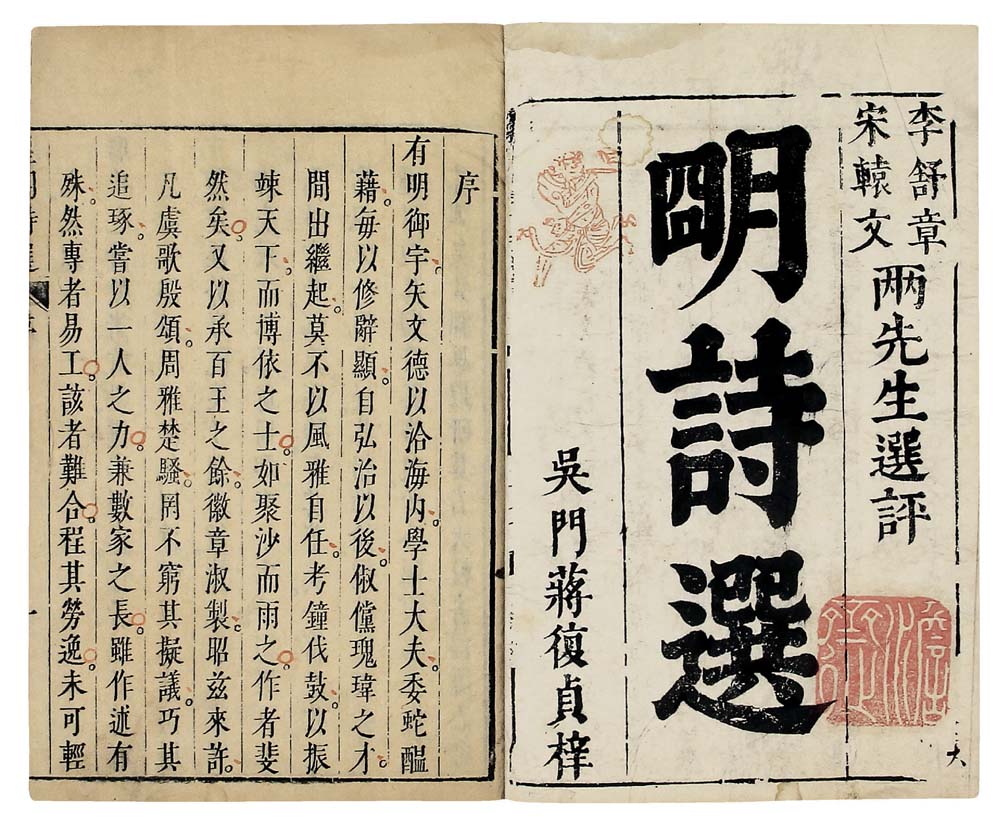 李舒章
宋轅文
兩先生選評
明詩選
吳門蔣復貞梓
序
有明御宇矢文德以洽海内學士大夫委蛇醞
藉每以修辭顯自弘治以後俶儻瑰瑋之才
間出繼起莫不以風雅自任考鐘伐鼓以振
竦天下而博依之士如聚沙而雨之作者斐
然矣又以承百王之餘徽章淑製昭兹來許
凡虞歌殷頌周雅楚騷罔不窮其擬議巧其
追琢嘗以一人之力兼數家之長雖作述有
殊然專者易工該者難合程其勞逸未可輕